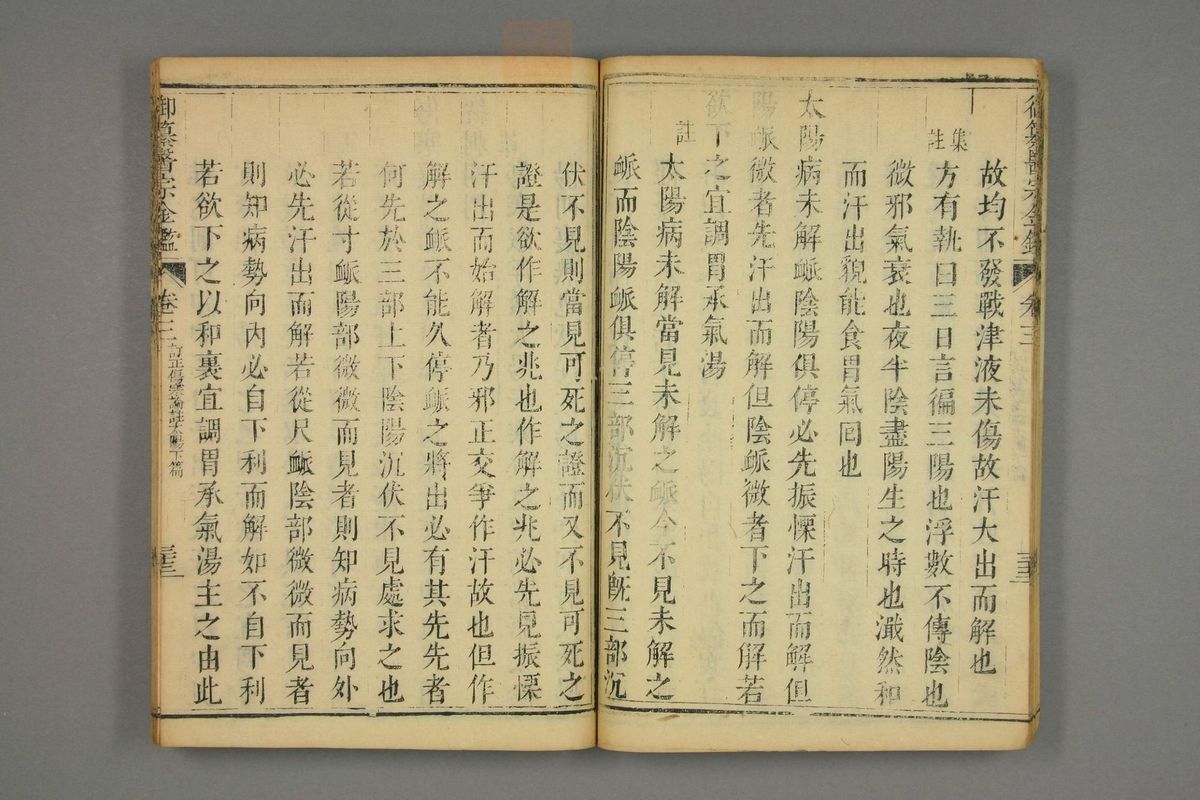 御纂醫宗金鑑 卷三
故均不發戰津液未傷故汗大出而解也
集註
方有執曰三日言徧三陽也浮數不傳陰也
微邪氣衰也夜半陰盡陽生之時也濈然和
而汗出貌能食胃氣回也
太陽病未解脈陰陽俱停必先振慄汗出而解但
陽脈微者先汗出而解但陰脈微者下之而解若
欲下之宜調胃承氣湯
註
太陽病未解當見未解之脈今不見未解之
脈而陰陽脈俱停三部沉伏不見旣三部沉
伏不見則當見可死之證而又不見可死之
證是欲作解之兆也作解之兆必先見振慄
汗出而始解者乃邪正交爭作汗故也但作
解之脈不能久停脈之將出必有其先先者
何先於三部上下陰陽沉伏不見處求之也
若從寸脈陽部微微而見者則知病勢向外
必先汗出而解若從尺脈陰部微微而見者
則知病勢向內必自下利而解如不自下利
若欲下之以和裏宜調胃承氣湯主之由此
御纂醫宗金鑑 卷三 訂正傷寒論註太陽下篇 三三